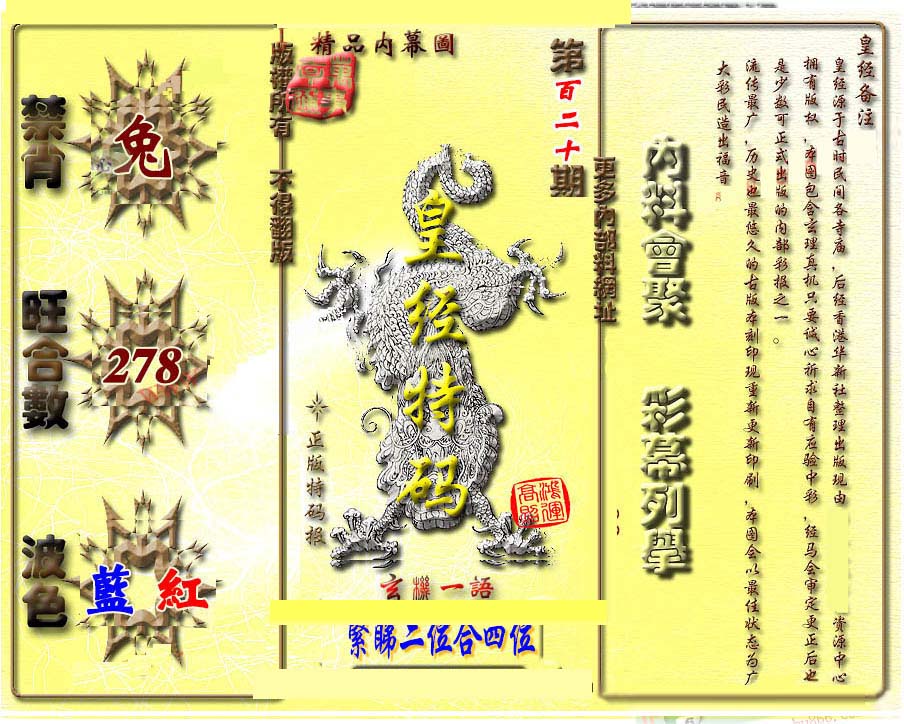 皇经备注
皇经源于古时民间各寺庙，后经香港华新社整理出版现由
资源中心
拥有版权，本图包含玄理真机只要诚心祈求自有应验中彩，经马会审定更正后也
是少数可正式出版的内部彩报之一。
流传最广，历史也最悠久的古版本刻印现重新更新印刷，本图会以最佳状态为广
大彩民造出福音
内料會聚
彩幕列學
更多內部料網址
第百二十期
精品内幕圖
版權所有 不得翻版
皇经特码
正版特码报
鴻運高照
玄機一語
緊睇二位合四位
禁肖
兔
旺合數
278
波色
藍 紅